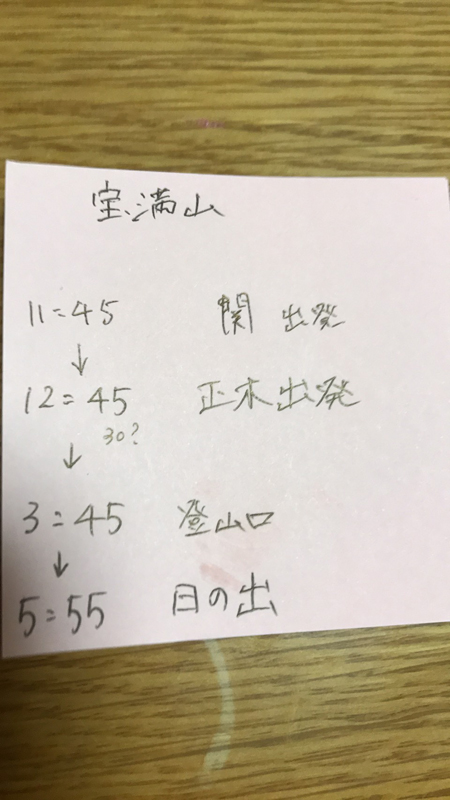 宝満山
11:45 関 出発
↓
12:45 正木出発
30?
↓
3:45 登山口
↓
5:55 日の出